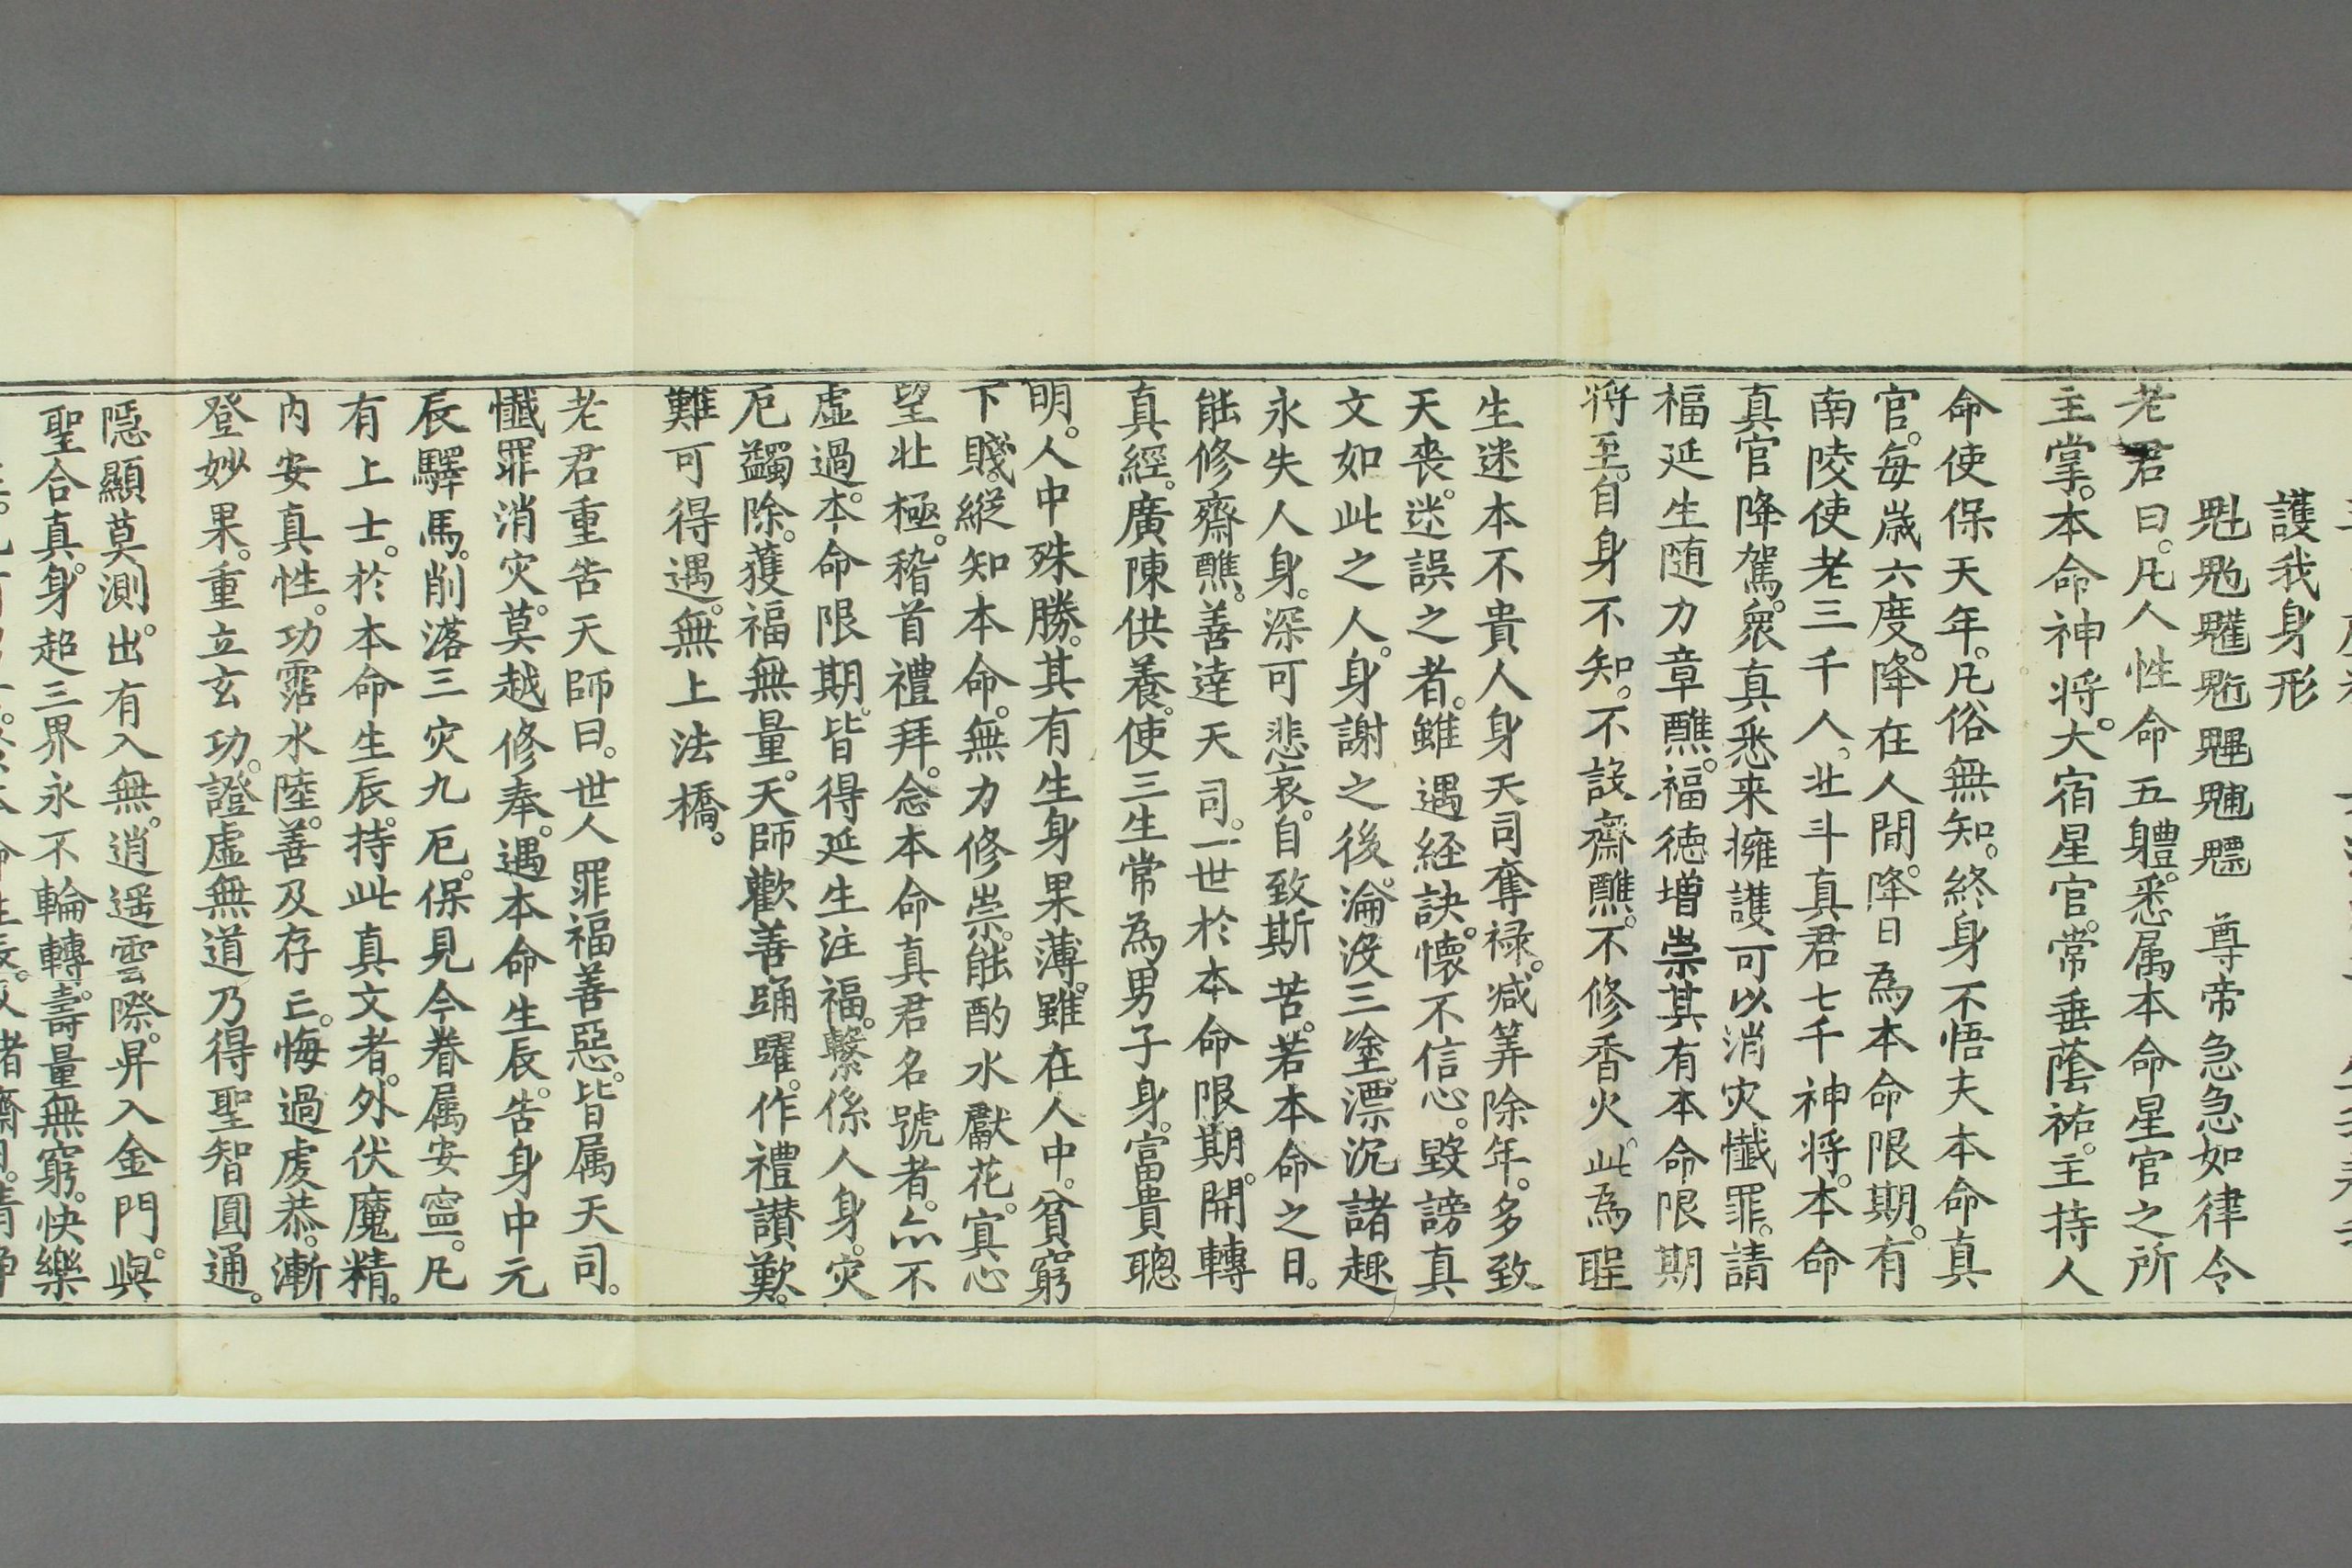 護我身形
魁𩲃䰢魓䰡魒 尊帝急急如律令
老君曰。凡人性命五體。悉属本命星官之所
主掌。本命神将。大宿星官。常垂蔭祐。主持人
命使保天年。凡俗無知。終身不悟夫本命真
官。每嵗六度。降在人間。降日為本命限期。有
南陵使老三千人。北斗真君七千神将。本命
真官降駕。衆真悉来擁護可以消灾懺罪。請
福延生随力章醮。福徳增崇其有本命限期
将至。自身不知。不設齋醮。不修香火。此為𨊥
生迷本不貴人身天司奪禄。减筭除年。多致
天喪。迷誤之者。雖遇経訣。懷不信心。毀謗真
文如此之人。身謝之後。淪没三塗。漂沉諸趣
永失人身。深可悲哀。自致斯苦。若本命之日。
能修齋醮。善達天司。一世於本命限期。開轉
真經。廣陳供養。使三生常為男子身。富貴聰
明。人中殊勝。其有生身果薄。雖在人中。貧窮
下賤。縱知本命。無力修崇。能酌水獻花。寘心
望北極。稽首禮拜。念本命真君名號者。亦不
虚過。本命限期。皆得延生注福。繫係人身。灾
厄蠲除。獲福無量。天師歡善踊躍。作禮讃歎。
難可得遇。無上法橋。
老君重告天師曰。世人罪福善惡。皆属天司。
懺罪消灾。莫越修奉。遇本命生辰。告身中元
辰驛馬。削落三灾九厄。保見今眷属安寍。凡
有上士。於本命生辰。持此真文者。外伏魔精。
内安真性。功霑水陸。善及存亡。悔過虔恭。漸
登妙果。重立玄功。證虚無道乃得聖智圓通。
隱顯莫測。出有入無。逍遥雲際。昇入金門。與
聖合真。身超三界永不輪轉。壽量無窮。快樂